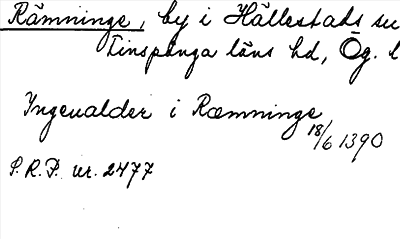 Rämninge, by i Hällestads su
Finspånga läns hd, Ög. l
Ingeualder i Ræmninge
18/6 1390
S.R.P. nr. 2477